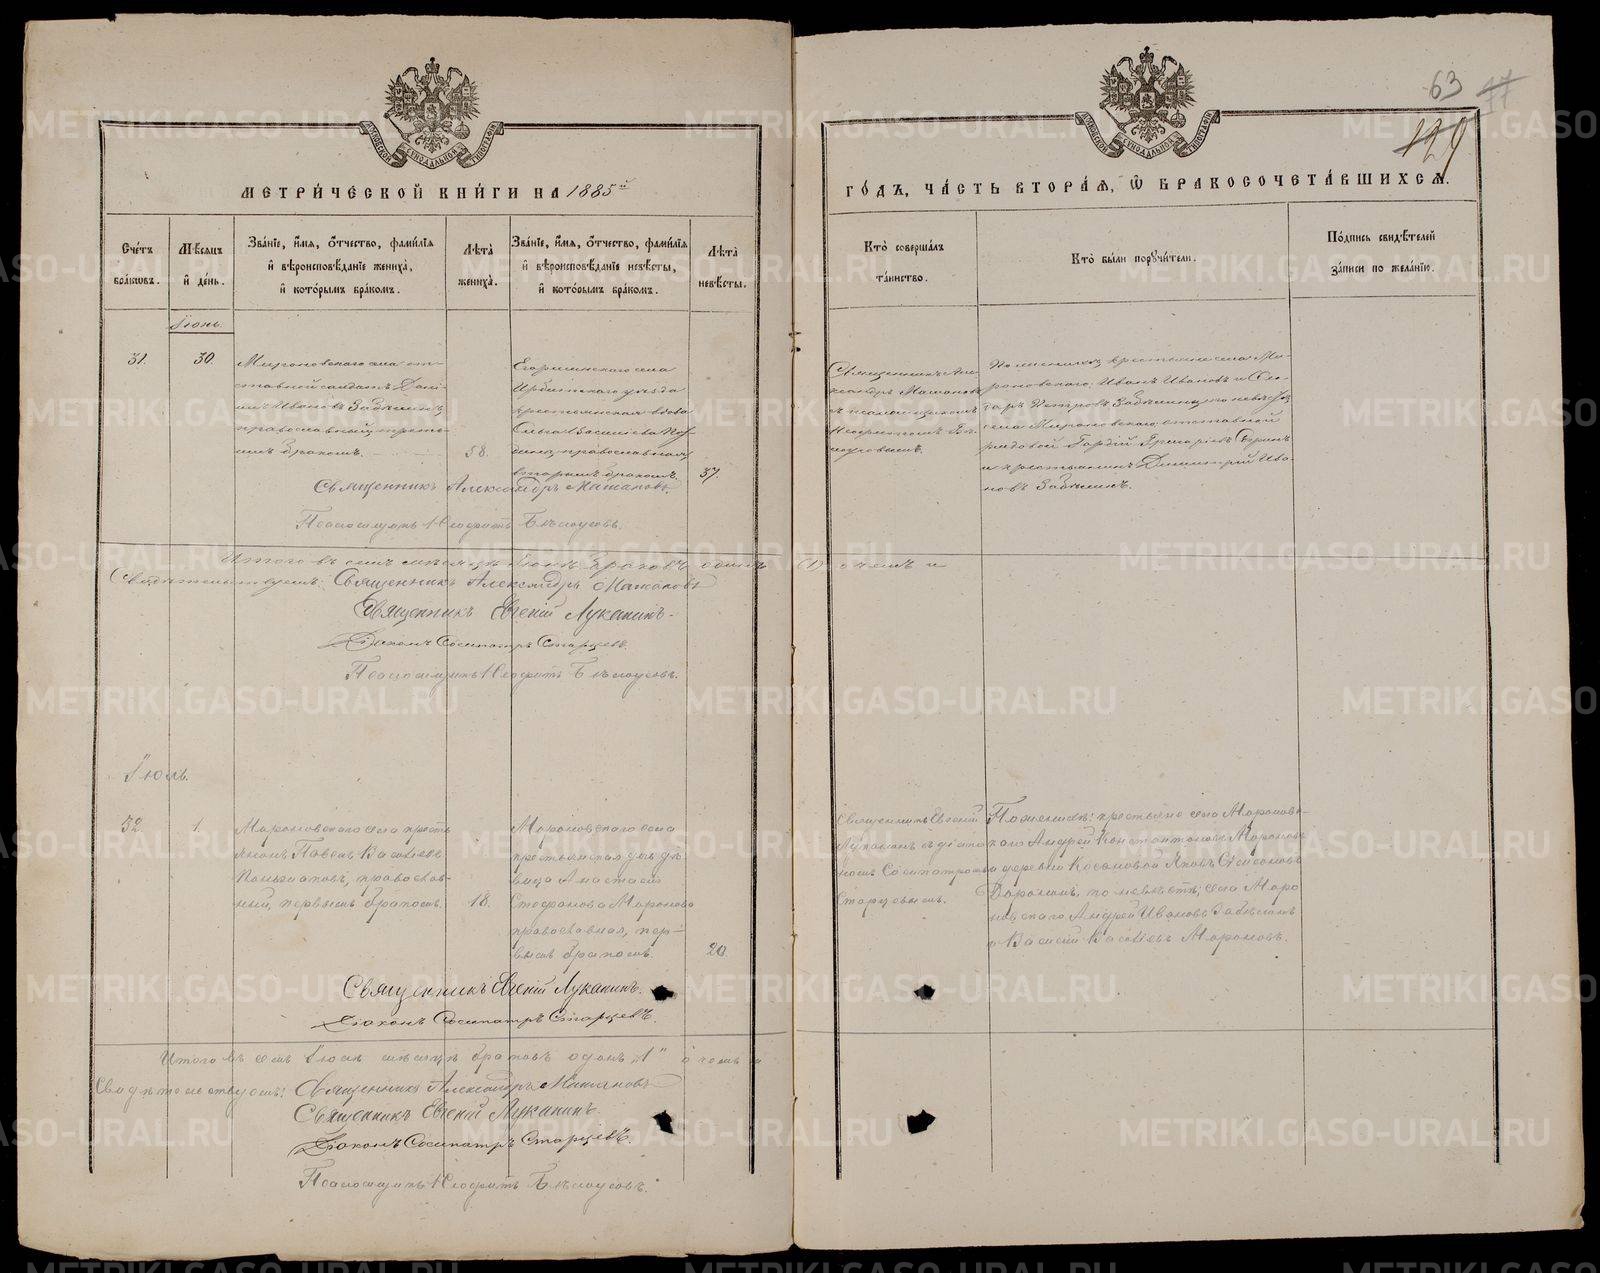 63
129
МЕТРИЧЕСКОЙ КНИГИ НА 1885й
ГОДЪ, ЧАСТЬ ВТОРАЯ, Ѿ БРАКОСОЧЕТАВШИХСЯ.
Счетъ браковъ.
Мѣсяцъ и день.
Званіе, имя, отчество, фамилія
и вѣроисповѣданіе жениха,
и которымъ бракомъ.
Лѣта жениха.
Званіе, имя, отчество, фамилія
и вѣроисповѣданіе невѣсты,
и которымъ бракомъ.
Лѣта невѣсты.
Кто совершалъ
таинство.
Кто были поручители.
Подпись свидѣтелей
записи по желанію.
Іюнь.
31.
30.
Мироновскаго села от-
ставной солдатъ Дані-
илъ Ивановъ Забѣлинъ
православный, треть-
имъ бракомъ.
58.
Егоршинскаго села
Ирбитскаго уѣзда
крестьянская вдова
Ольга Васильева
православная,
вторымъ бракомъ.
37.
Священникъ Але-
ксандръ Мамановъ
съ псаломщикомъ
Неофитомъ Бѣ-
лоусовымъ.
По женихѣ крестьяне села Ми-
роновскаго: Иванъ Ивановъ и
Петровъ Забѣлины; по невѣстѣ
села Мироновскаго: отставной
рядовой Гордій Григорьевъ
и крестьянинъ Димитрій Ива-
новъ Забѣлинъ.
Священникъ Александръ Мамановъ.
Псаломщикъ Неофитъ Бѣлоусовъ.
Итого въ семъ мѣсяцѣ Іюнѣ браковъ одинъ (1) о чемъ и
Свидѣтельствуемъ: Священникъ Александръ Мамановъ
Священникъ Евгеній Луканинъ.
Діаконъ Сосипатръ Старцевъ.
Псаломщикъ Неофитъ Бѣлоусовъ.
Іюль.
32.
1.
Мироновскаго села кресть-
янинъ Павелъ Васильевъ
православ-
ный, первымъ бракомъ.
18.
Мироновскаго села
крестьянская дочь дѣ-
вица Анастасія
Стефанова Миронова
православная, пер-
вымъ бракомъ.
20.
Священникъ Евгеній
Луканинъ съ діако-
номъ Сосипатромъ
Старцевымъ.
По женихѣ: крестьяне села Миронов-
скаго Андрей Константиновъ Мироновъ
и деревни Яковъ
по невѣстѣ: села Миро-
новскаго Андрей Ивановъ Забѣлинъ
и Василій Васильевъ Мироновъ.
Священникъ Евгеній Луканинъ.
Діаконъ Сосипатръ Старцевъ.
Итого въ семъ Іюлѣ мѣсяцѣ браковъ одинъ „1“ о чемъ и
Свидѣтельствуемъ: Священникъ Александръ Мамановъ
Священникъ Евгеній Луканинъ
Діаконъ Сосипатръ Старцевъ.
Псаломщикъ Неофитъ Бѣлоусовъ.
METRIKI.GASO-URAL.RU